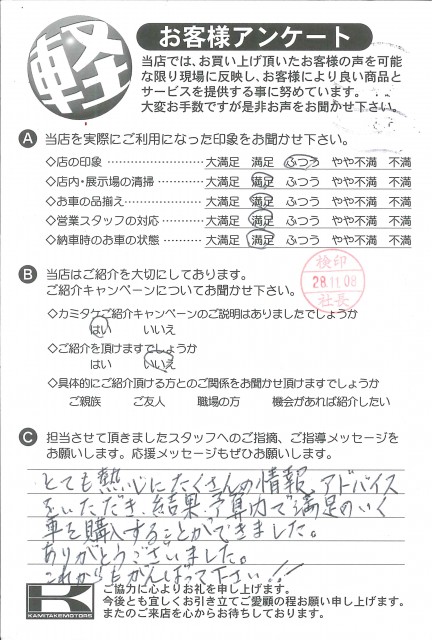 軽
お客様アンケート
当店では、お買い上げ頂いたお客様の声を可能
な限り現場に反映し、お客様により良い商品と
サービスを提供する事に努めています。
大変お手数ですが是非お声をお聞かせ下さい。
A 当店を実際にご利用になった印象をお聞かせ下さい。
◇店の印象 ………………… 大満足 満足 ふつう やや不満 不満
◇店内・展示場の清掃………… 大満足 満足 ふつう やや不満 不満
◇お車の品揃え……………… 大満足 満足 ふつう やや不満 不満
◇営業スタッフの対応………… 大満足 満足 ふつう やや不満 不満
◇納車時のお車の状態………… 大満足 満足 ふつう やや不満 不満
B 当店はご紹介を大切にしております。
ご紹介キャンペーンについてお聞かせ下さい。
検印
28.11.08
社長
◇カミタケご紹介キャンペーンのご説明はありましたでしょうか
はい いいえ
◇ご紹介を頂けますでしょうか
はい いいえ
◇具体的にご紹介頂ける方とのご関係をお聞かせ頂けますでしょうか
ご親族 ご友人 職場の方 機会があれば紹介したい
C 担当させて頂きましたスタッフへのご指摘、ご指導メッセージを
お願いします。応援メッセージもぜひお願いします。
とても熱心にたくさんの情報、アドバイス
をいただき、結果、予算内で満足のいく
車を購入することができました。
ありがとうございました。
これからもがんばって下さい!!
K
KAMITAKEMOTORS
ご協力に心よりお礼を申し上げます。
今後とも宜しくお引き立てご愛顧の程お願い申し上げます。
またのご来店を心からお待ちしております。